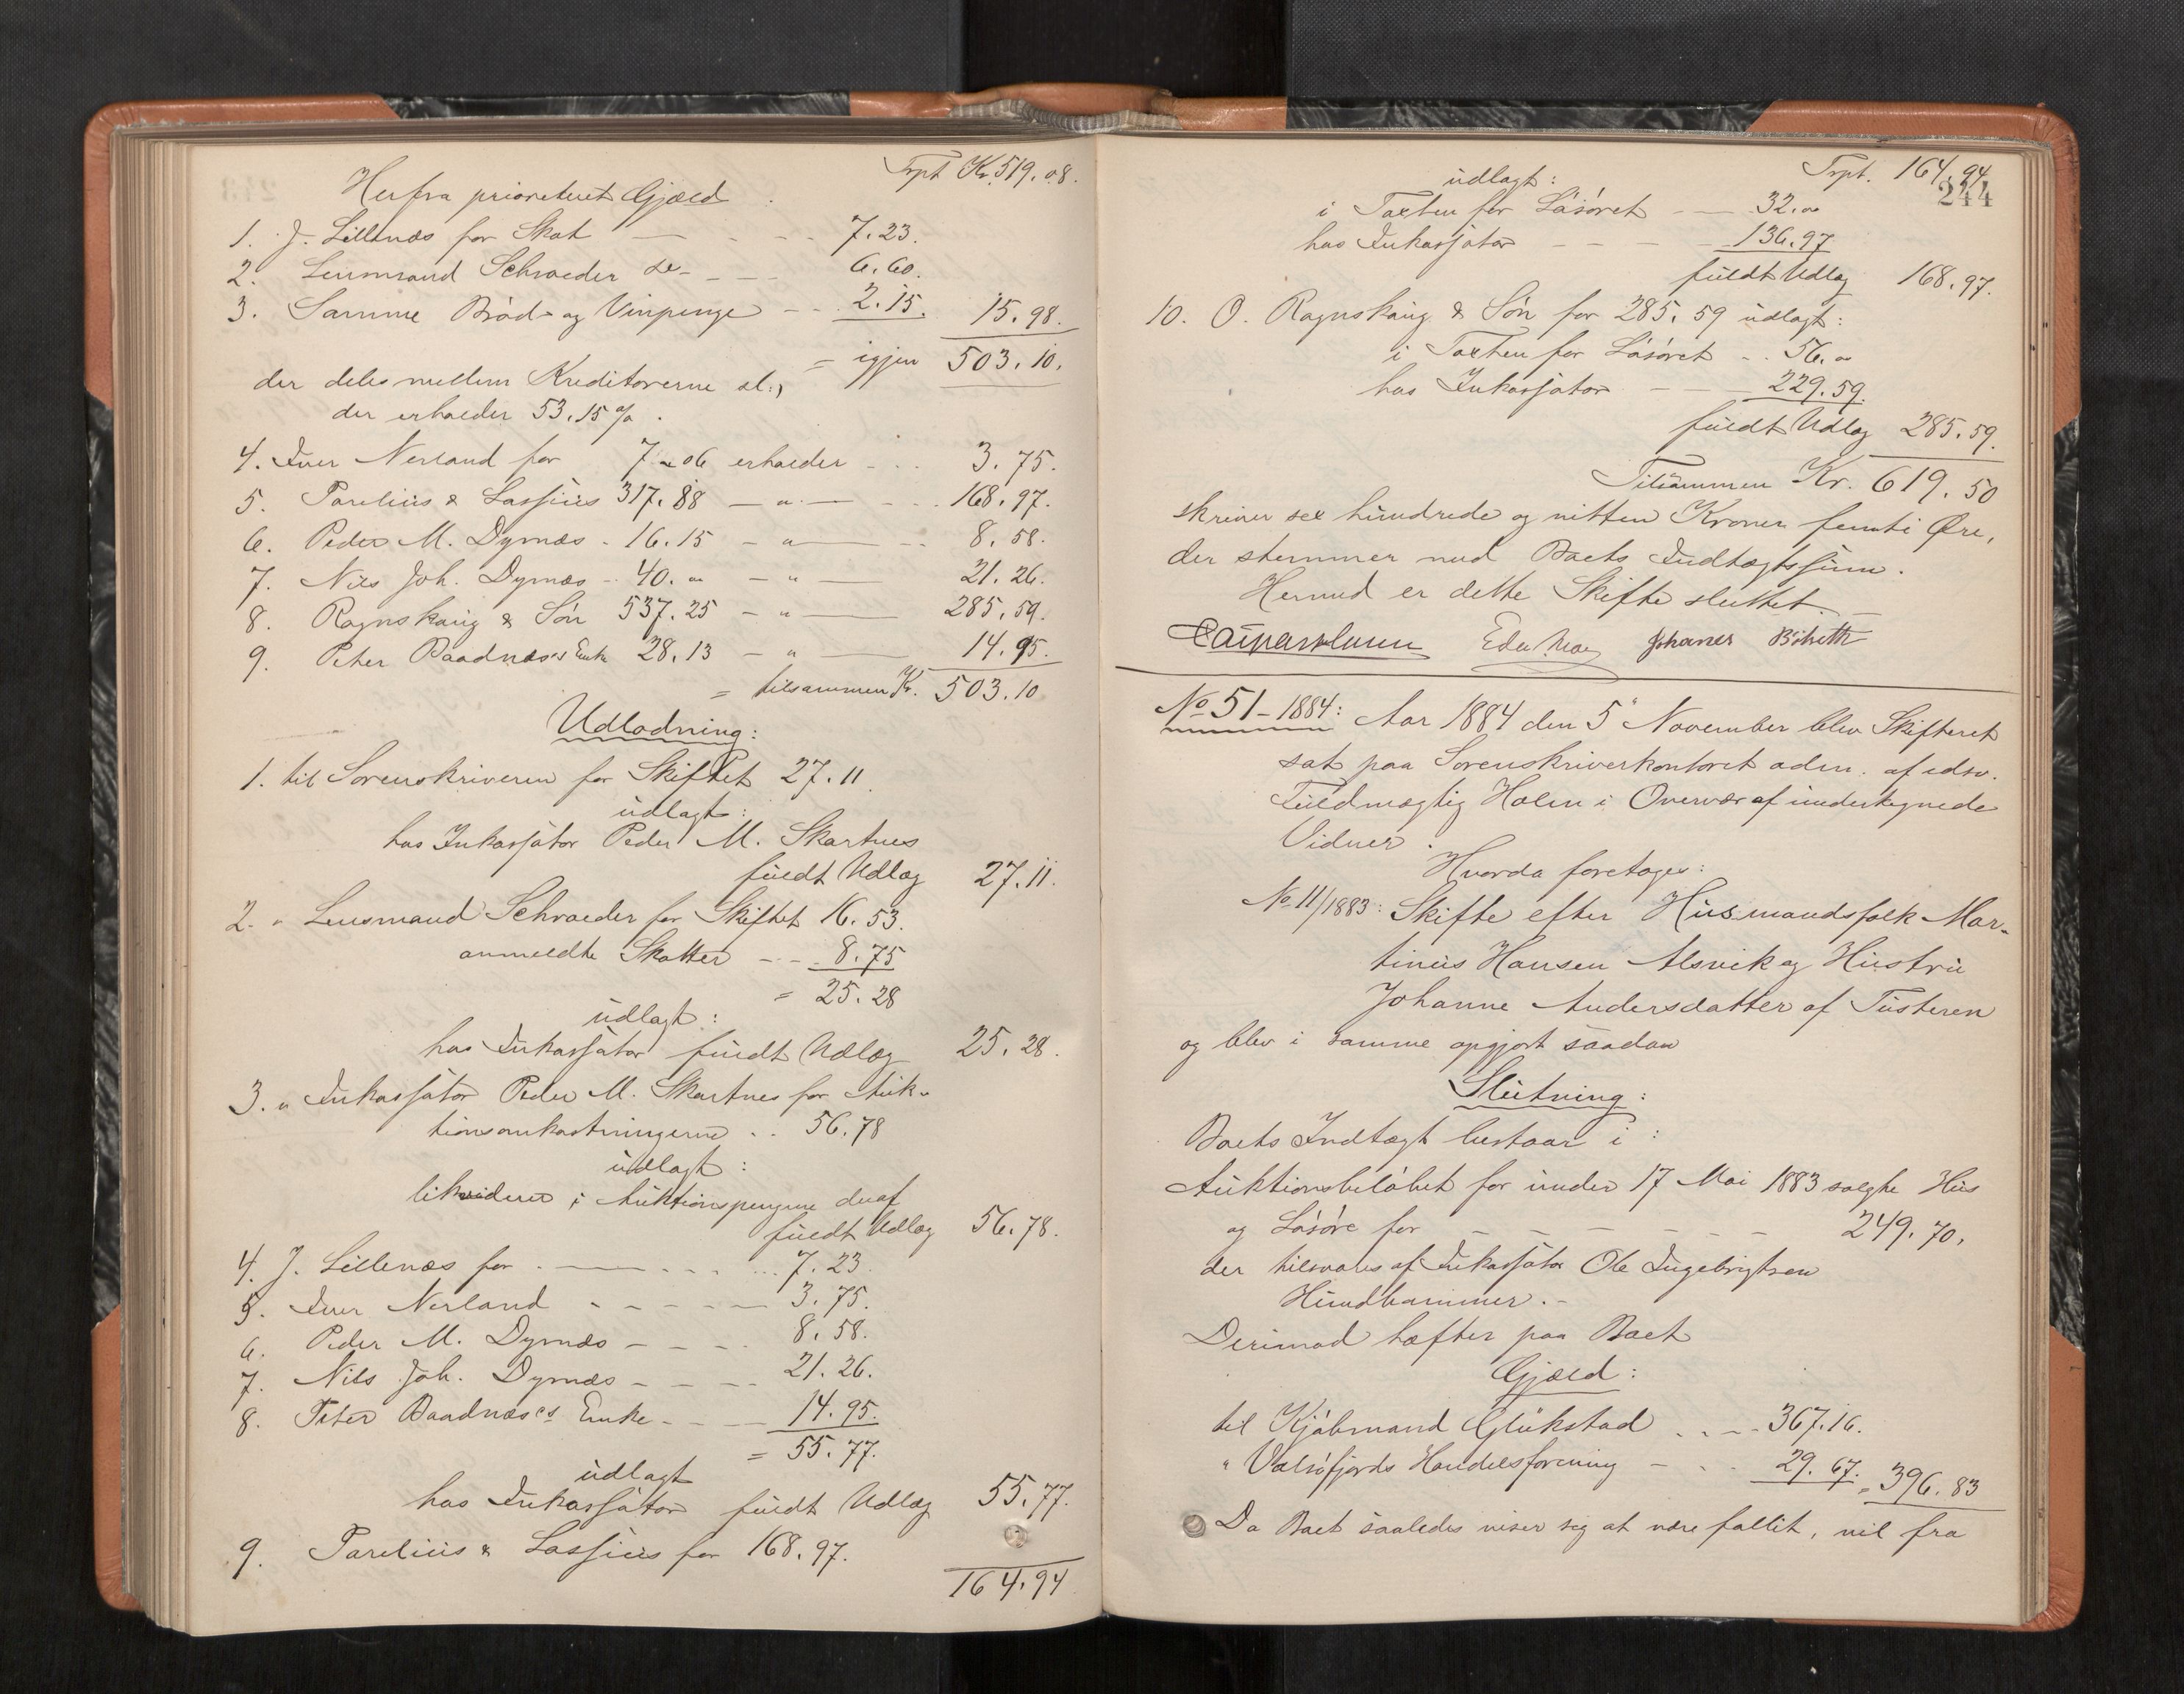 Trpt Kr. 519.08.
Herfra prioriteret Gjæld
1. J. Lillenæs for Skat — 7.23.
2. Lensmand Schrøeder do — 6.60.
3. Samme Brød- og Vinpenge — 2.15. 15.98.
= igjen 503.10.
der deles mellem Kreditorerne
der erholder 53.15 %.
4. Iver Nerland for 7 - 06 erholder 3.75.
5. Parelius & Lossius 317.88 — " — 168.97.
6. Peder M. Dyrnæs - 16.15 - " — 8.58.
7. Nils Joh. Dyrnæs - 40. " - " — 21.26.
8. Rognskaug & Søn 537.25 - " — 285.59.
9. Peter Baadnæs's Enke 28.13 - " — 14.95.
= tilsammen Kr. 503.10
Udlodning:
1. til Sorenskriveren for Skiftet 27.11.
udlagt:
hos Inkassator Peder M. Skartnes
fuldt Udlæg 27.11.
2. " Lensmand Schrøeder for Skiftet 16.53.
anmeldte Skatter --- 8.75
= 25.28
udlagt:
hos Inkassator fuldt Udlæg 25.28.
3. " Inkassator Peder M. Skartnes for Auk-
tionsomkostningerne .. 56.78
udlagt:
likviderer i Auktionspengene deraf
fuldt Udlæg 56.78.
4. J. Lillenæs for — 7.23.
5. Iver Nerland - - - 3.75.
6. Peder M. Dyrnæs - - - 8.58.
7. Nils Joh. Dyrnæs - - - 21.26.
8. Peter Baadnæs's Enke - - 14.95.
= 55.77.
udlagt
hos Inkassator fuldt Udlæg 55.77.
9. Parelius & Lossius for 168.97.
164.94
Trpt. 164.94
244
udlagt:
i Taxten for Løsøret — 32. "
hos Inkassator - - - 136.97
fuldt Udlæg 168.97.
10. O. Rognskaug & Søn for 285.59 udlagt:
i Taxten for Løsøret - . 56. "
hos Inkassator — 229.59.
fuldt Udlæg 285.59.
Tilsammen Kr. 619.50
skriver sex hundrede og nitten Kroner femti Øre,
der stemmer med Boets Indtægtssum.
Hermed er dette Skifte sluttet. —
Johanes
No 51 - 1884: Aar 1884 den 5' November blev Skifteret
sat paa Sorenskriverkontoret adm. af edsv.
Fuldmægtig Holm i Overvær af undertegnede
Vidner.
Hvorda foretoges:
No 11/1883: Skifte efter Husmandsfolk Mar-
tinus Hansen Alsvik og Hustru
Johanne Andersdatter af Tusteren
og blev i samme opgjort saadan
Slutning:
Boets Indtægt bestaar i:
Auktionsbeløbet for under 17 Mai 1883 solgte Hus
og Løsøre for — 249.70,
der tilsvares af Inkassator Ole Ingebrigtsen
Hundhammer. -
Derimod hæfter paa Boet
Gjæld:
til Kjøbmand Glükstad . . - - 367.16.
" Valsøfjords Handelsforening - . . 29.67. = 396.83
Da Boet saaledes viser sig at være fallit, vil fra